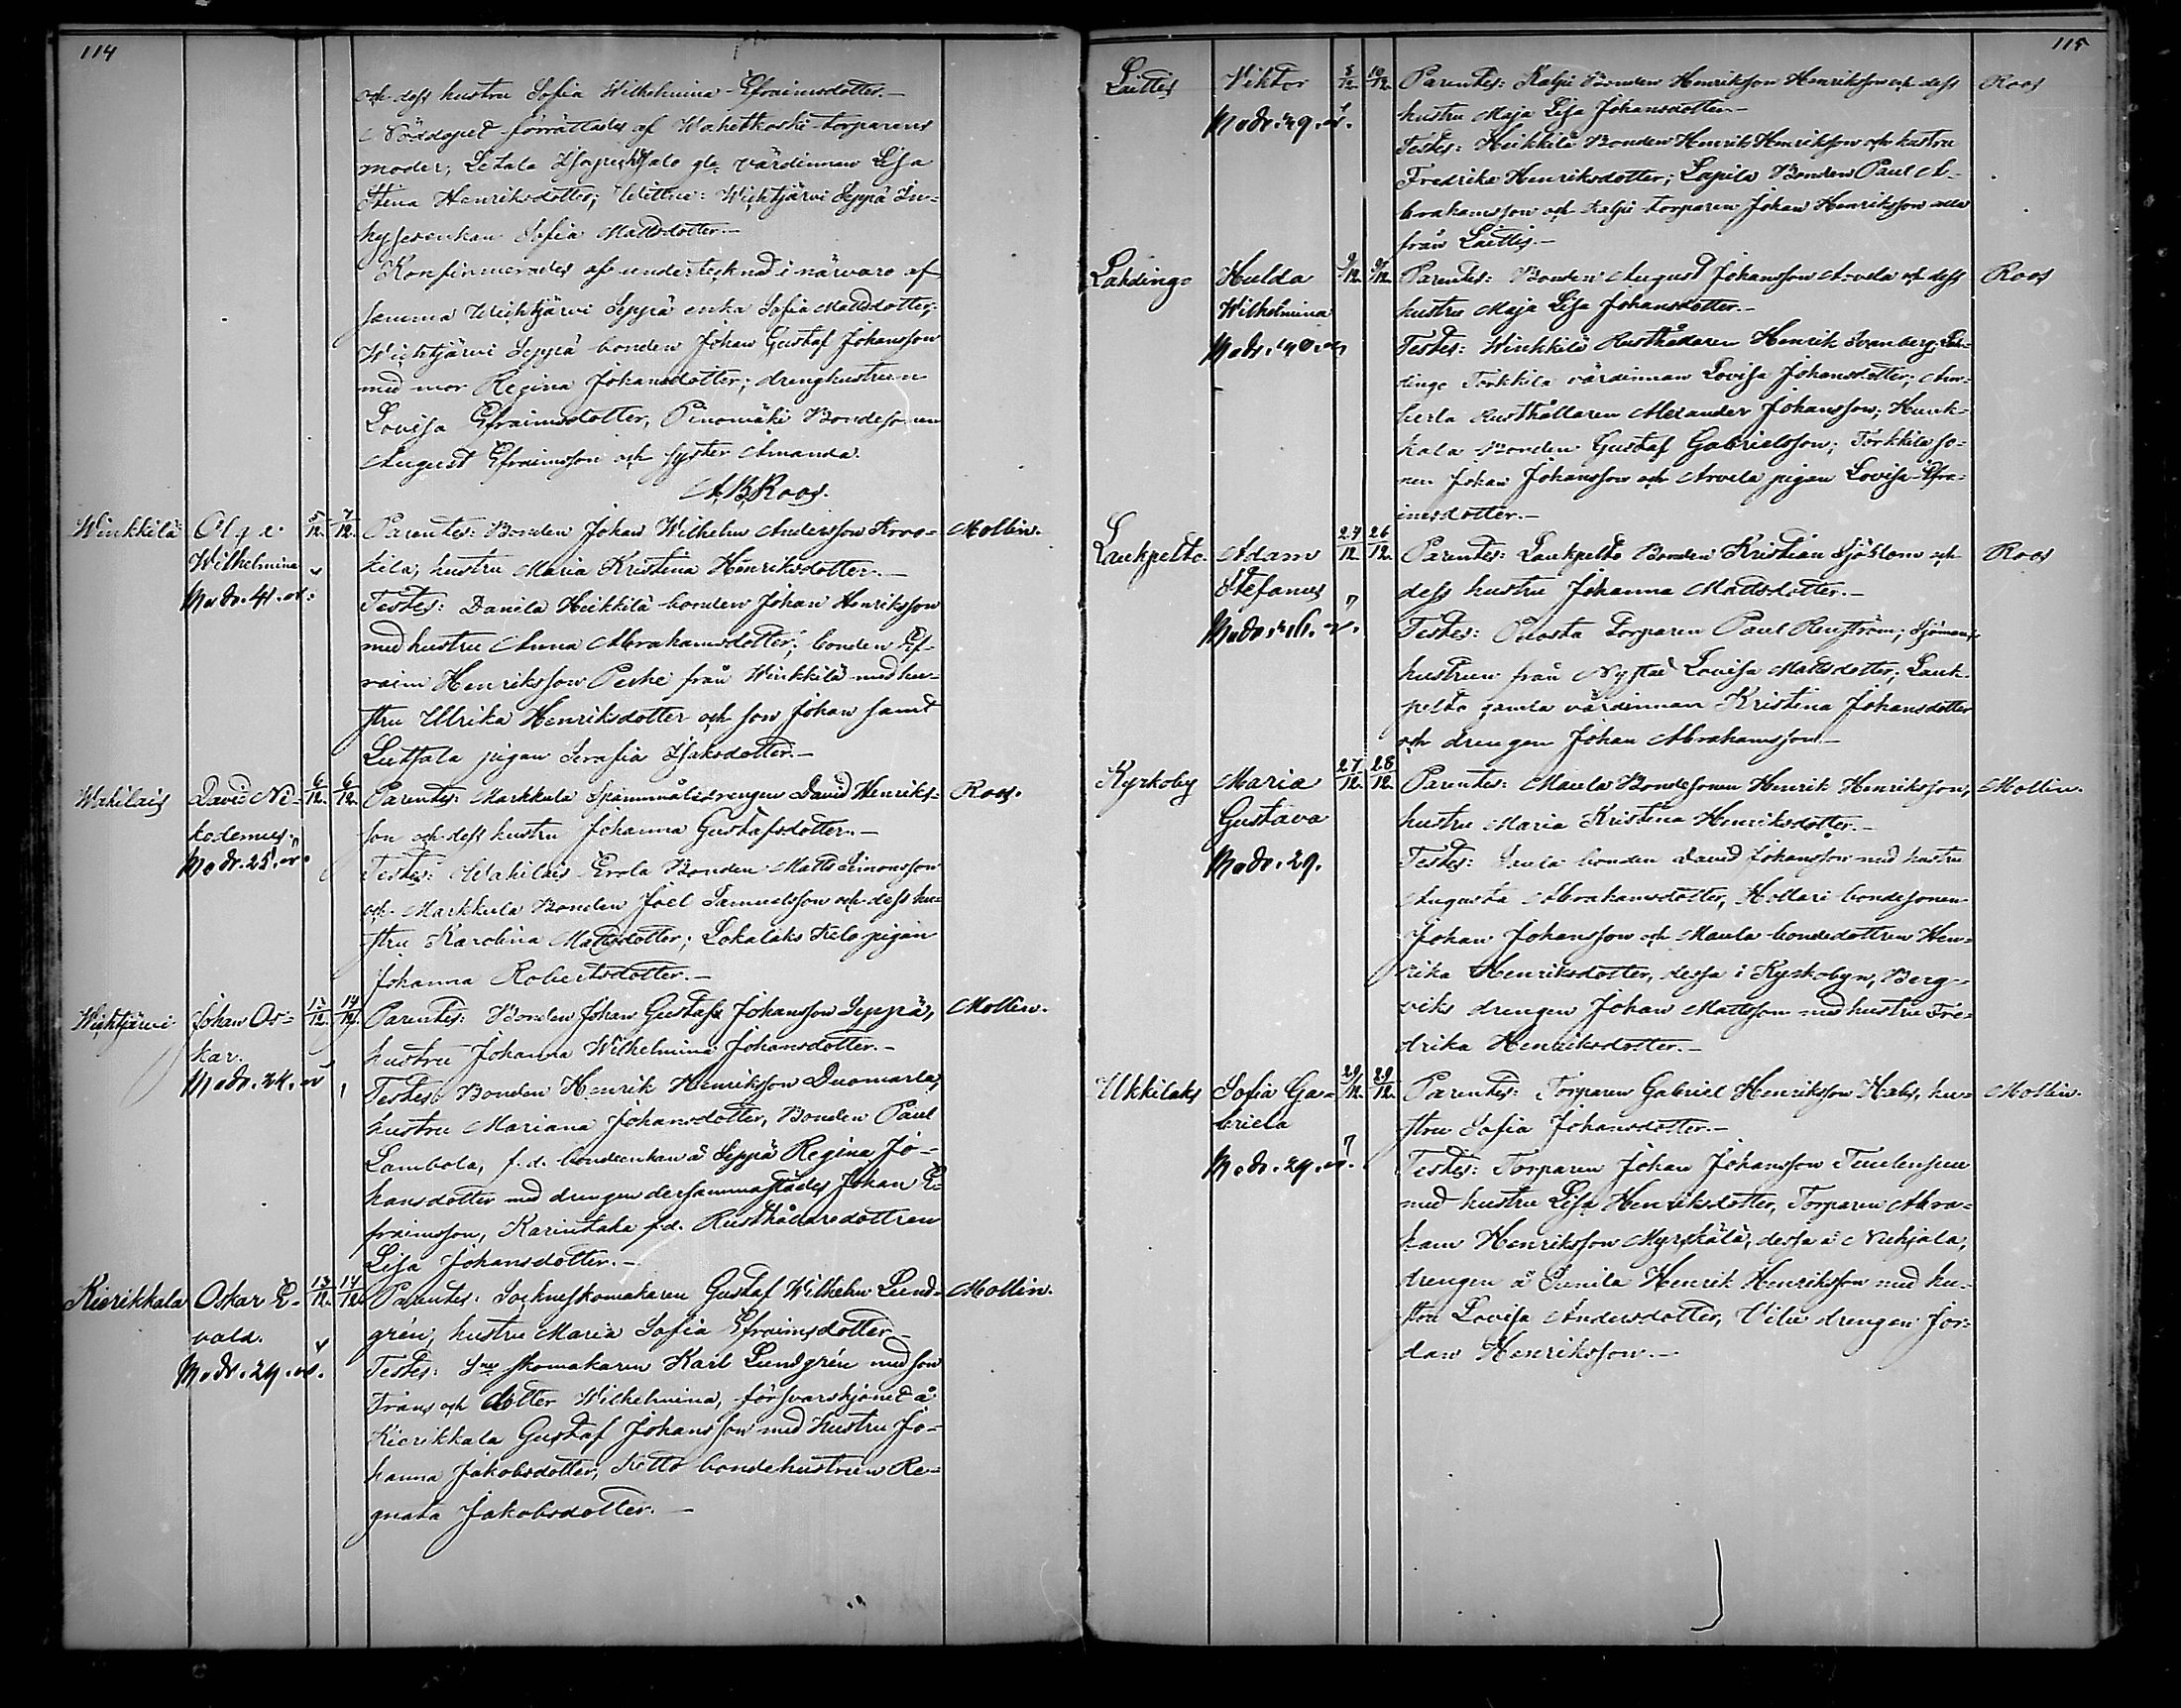 114
och dess hustru Sofia Wilhelmina Efraimsdotter.—
Nöddopet förrättades af Wahetkoski torparens
moder; Letala gla värdinnan Lisa
Stina Henriksdotter; Wittne: Wichtjärvi Seppä In-
hysesenkan Sofia Mattsdotter.—
Konfirmerades af undertecknad i närvaro af
samma Wichtjärvi Seppä enka Sofia Mattsdotter;
Wichtjärvi Seppä bonden Johan Gustaf Johansson
med mor Regina Johansdotter; drenghustrun
Lovisa Efraimsdotter, Pinomäki Bondesonen
August Efraimsson och syster Amanda.
AB Roos.
Winkkilä Olga 5/12. 7/12. Parentes: Bonden Johan Wilhelm Andersson Kroo- Mollin.
Wilhelmina kila, hustru Maria Kristina Henriksdotter.—
Modr. 41. år. Testes: Danila Heikkilä bonden Johan Henriksson
med hustru Anna Abrahamsdotter; bonden Ef-
raim Henriksson Peshe från Winkkilä med hu-
stru Ulrika Henriksdotter och son Johan samt
Luthala pigan Serafia Isaksdotter.—
Wahilais David Ni- 6/12. 6/12. Parentes: Markkula Spannmålsdrengen David Henriks- Roos.
kodemus son och dess hustru Johanna Gustafsdotter.—
Modr. 25. år Testes: Wahilais Erola Bonden Matts Simonsson
och Markkula Bonden Joel Samuelsson och dess hu-
stru Karolina Mattsdotter; Lokalaks Kelo pigan
Johanna Robertsdotter.—
Wichtjärvi Johan Os- 13/12. 14/12. Parentes: Bonden Johan Gustaf Johansson Seppä, Mollin.
kar. hustru Johanna Wilhelmina Johansdotter.—
Modr. 24. år Testes: Bonden Henrik Henriksson Duomarla,
hustru Mariana Johansdotter, Bonden Paul
Lambola, f.d. bondeenkan å Seppä Regina Jo-
hansdotter med drengen dersammastädes Johan E-
fraimsson, Karintaka f.d. Rusthållaredottren
Lisa Johansdotter.—
Kierikkala Oskar E- 13/12. 14/12. Parentes: Socknesskomakaren Gustaf Wilhelm Lund- Mollin.
vald. grén, hustru Maria Sofia Efraimsdotter.—
Modr. 29. år. Testes: Sne skomakaren Karl Lundgrén med son
Frans och dotter Wilhelmina, försvarskjoned å
Kierikkala Gustaf Johansson med hustru Jo-
hanna Jakobsdotter, Kotto bondehustrun Re-
gnata Jakobsdotter.—
115
Laittis Viktor 8/12 10/12. Parentes: Kalju Bonden Henriksson Henriksson och dess Roos
Modr. 29. år. hustru Maja Lisa Johansdotter.—
Testes: Heikkilä Bonden Henrik Henriksson och hustru
Fredrika Henriksdotter; Lapila Bonden Paul A-
brahamsson och Kalju torparen Johan Henriksson alla
från Laittis.—
Lahdingo Hulda 9/12. 9/12. Parentes: Bonden August Johansson Arvela och dess Roos
Wilhelmina hustru Maja Lisa Johansdotter.—
Modr. 40. år Testes: Winkkilä Rusthållaren Henrik Svanberg; Lah-
dingo Torkkila värdinnan Lovisa Johansdotter; Am-
herla Rusthållaren Alexander Johansson; Hunk-
kala Bonden Gustaf Gabrielsson; Torkkila so-
nen Johan Johansson och Arvela pigan Lovisa Efra-
imsdotter.—
Laukpelto. Adam 24/12 26/12. Parentes: Laukpelto Bonden Kristian Sjöblom och Roos
Stefanus dess hustru Johanna Mattsdotter.—
Modr. Testes: Puosta Torparen Paul Renström; Sjömans
hustrun från Nystad Lovisa Mattsdotter; Lauk-
pelto gamla värdinnan Kristina Johansdotter
och drengen Johan Abrahamsson.—
Kyrkoby Maria 27/12. 28/12. Parentes: Maula Bondesonen Henrik Henriksson, Mollin.
Gustava hustru Maria Kristina Henriksdotter.—
Modr. 29. Testes: bonden David Johansson med hustru
Augusta Abrahamsdotter, Hollari bondesonen
Johan Johansson och Maula bondedottren Hen-
rika Henriksdotter, dessa i Kyrkobyn, Berg-
viks drengen Johan Mattsson med hustru Fre-
drika Henriksdotter.—
Ukkilaks Sofia Ga- 29/12. 29/12. Parentes: Torparen Gabriel Henriksson Hals, hu- Mollin.
briela stru Sofia Johansdotter.—
Modr. 24. år. Testes: Torparen Johan Johansson Teulensuu
med hustru Lisa Henriksdotter, Torparen Abra-
ham Henriksson Myrskälä, dessa å Nuhjala,
drengen å Punila Henrik Henriksson med hu-
stru Lovisa Andersdotter, Vilu drengen Jor-
dan Henriksson.—